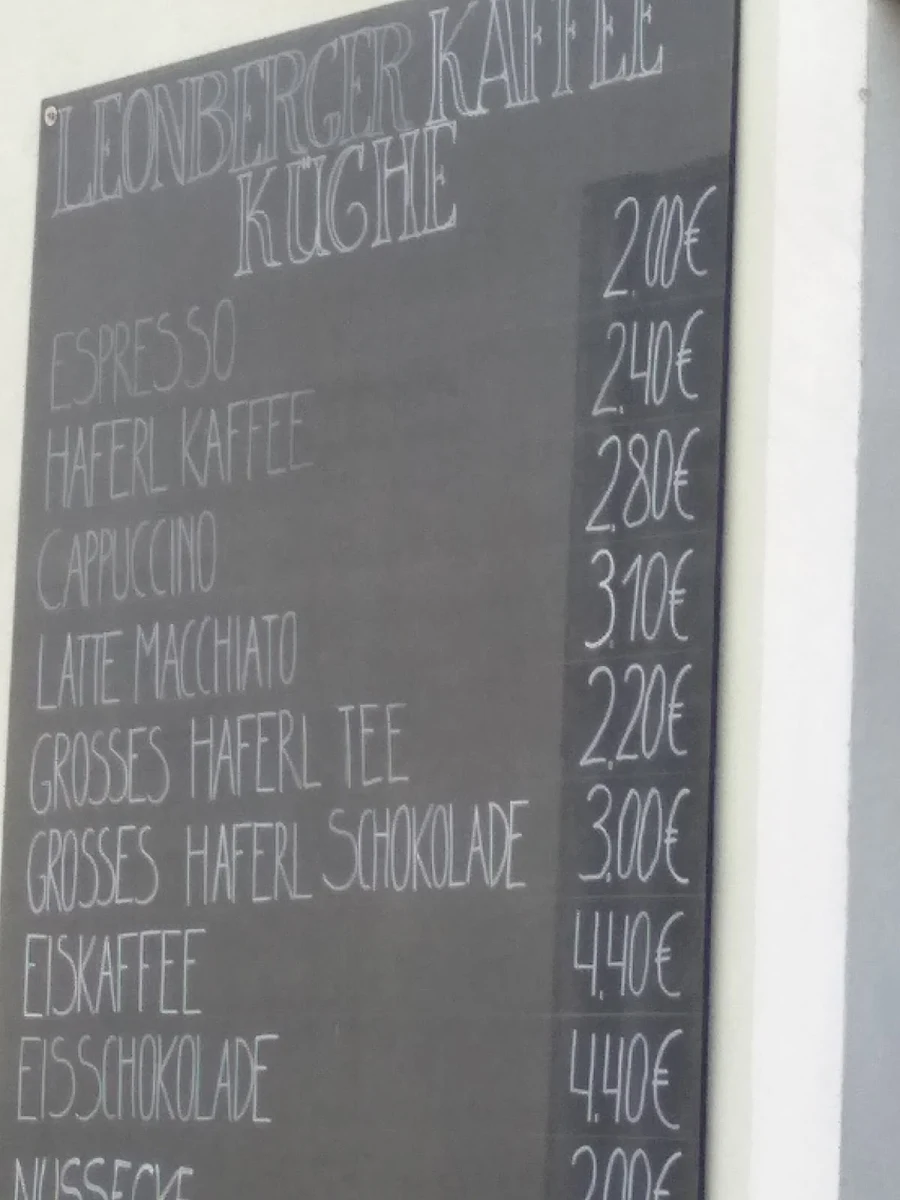 LEONBERGER KAFFEE
KÜCHE
ESPRESSO 2.00€
HAFERL KAFFEE 2.40€
CAPPUCCINO 2.80€
LATTE MACCHIATO 3.10€
GROSSES HAFERL TEE 2.20€
GROSSES HAFERL SCHOKOLADE 3.00€
EISKAFFEE 4.40€
EISSCHOKOLADE 4.40€
NUSSECKE 2.00€